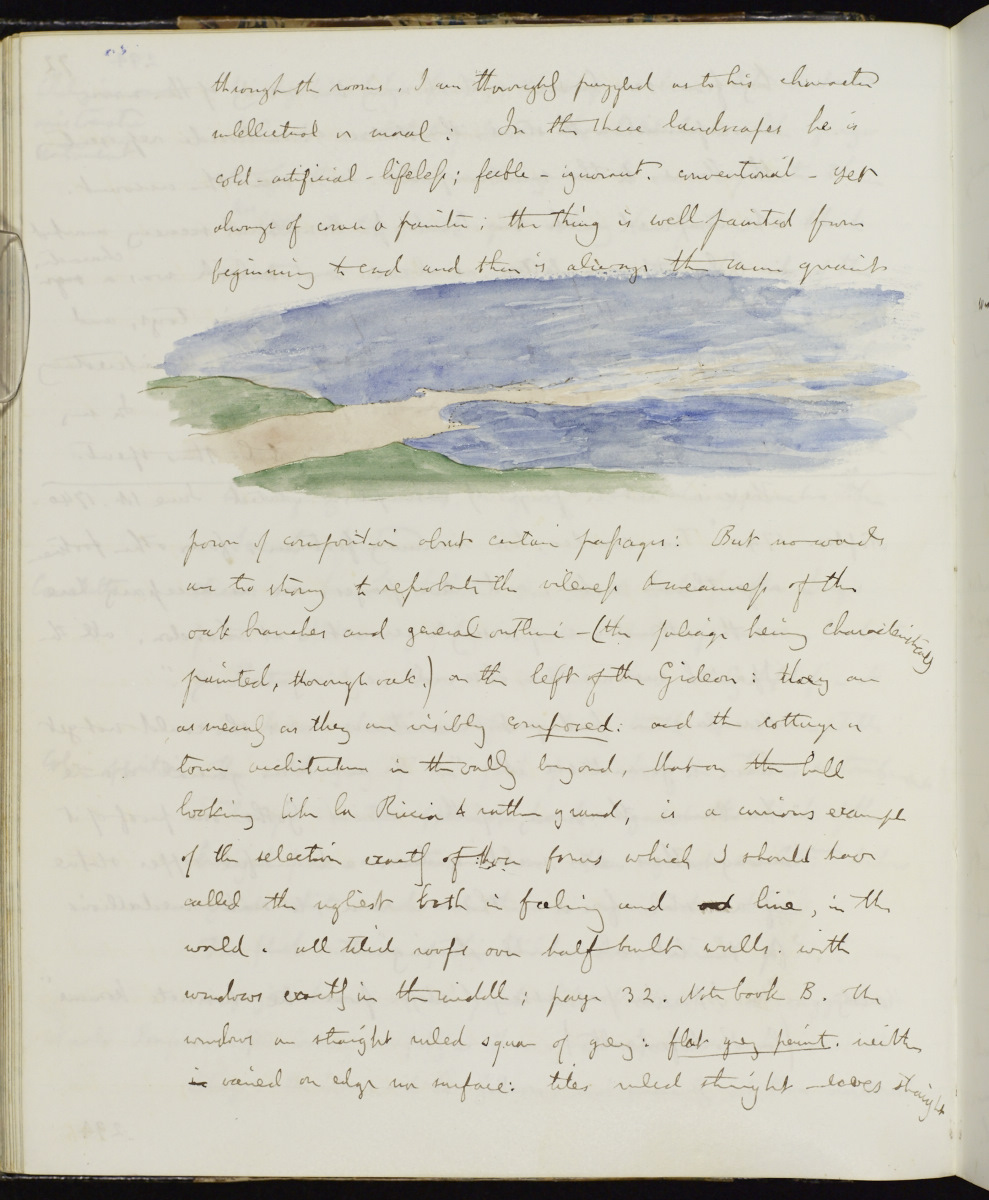 through the rooms. I am thoroughly puzzled as to his character
intellectual or moral: In the three landscapes he is
cold - artificial - lifeless; feeble - ignorant. conventional - yet
always of course a painter; the thing is well painted from
beginning to end and there is always the same quaint
power of composition about certain passages: But no words
are too strong to reprobate the vileness & meanness of the
oak branches and general outline - (the foliage being characteristically
painted, thorough oak.) on the left of the Gideon: they are
as mean as they are visibly composed: and the cottage or
town architecture in the valley beyond, that on the hill
looking like La Riccia & rather grand, is a curious example
of the selection exactly of those forms which I should have
called the ugliest both in feeling and line, in the
world. all tiled roofs over half built walls. with
windows exactly in the middle; page 32. Note book B. The
windows are straight ruled square of grey: flat grey paint. neither
varied on edge nor surface: tiles ruled straight - eaves straight